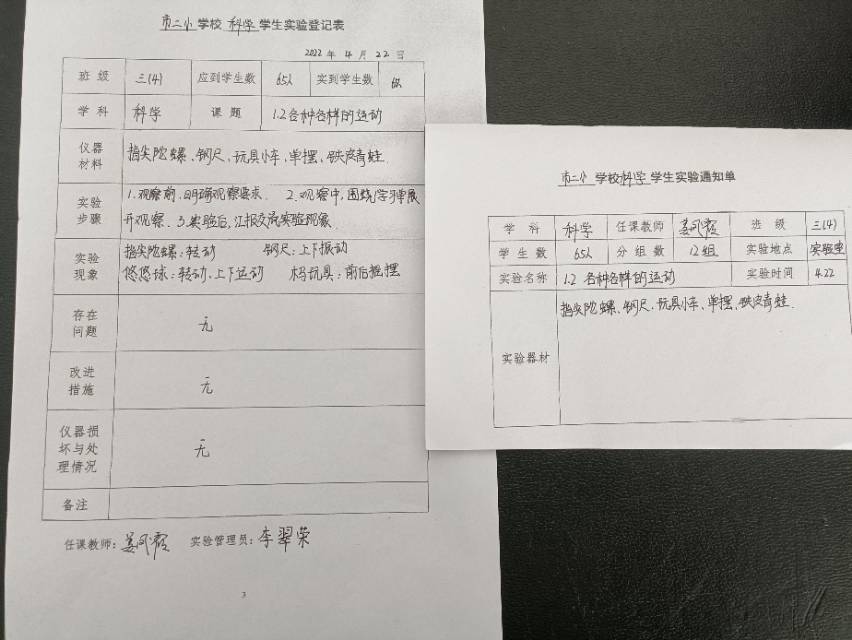 市二小学校 科学 学生实验登记表
2022 年 4 月 22 日
班级 三(4) 应到学生数 65人 实到学生数
学科 科学 课题 1.2各种各样的运动
仪器
材料
指尖陀螺、钢尺、玩具小车、单摆、铁皮青蛙.
实验
步骤
1.观察前,明确观察要求. 2.观察中,围绕学习单展
开观察. 3.实验后,汇报交流实验现象.
实验
现象
指尖陀螺:转动 钢尺:上下振动
悠悠球:转动、上下运动 木马玩具:前后摇摆
存在
问题
无
改进
措施
无
仪器损
坏与处
理情况
无
备注
任课教师:姜凤霞 实验管理员:李翠荣
3
市二小 学校科学 学生实验通知单
学科 科学 任课教师 姜凤霞 班级 三(4)
学生数 65人 分组数 12组 实验地点 实验室
实验名称 1.2 各种各样的运动 实验时间 4.22
实验器材
指尖陀螺、钢尺、玩具小车、单摆、铁皮青蛙.